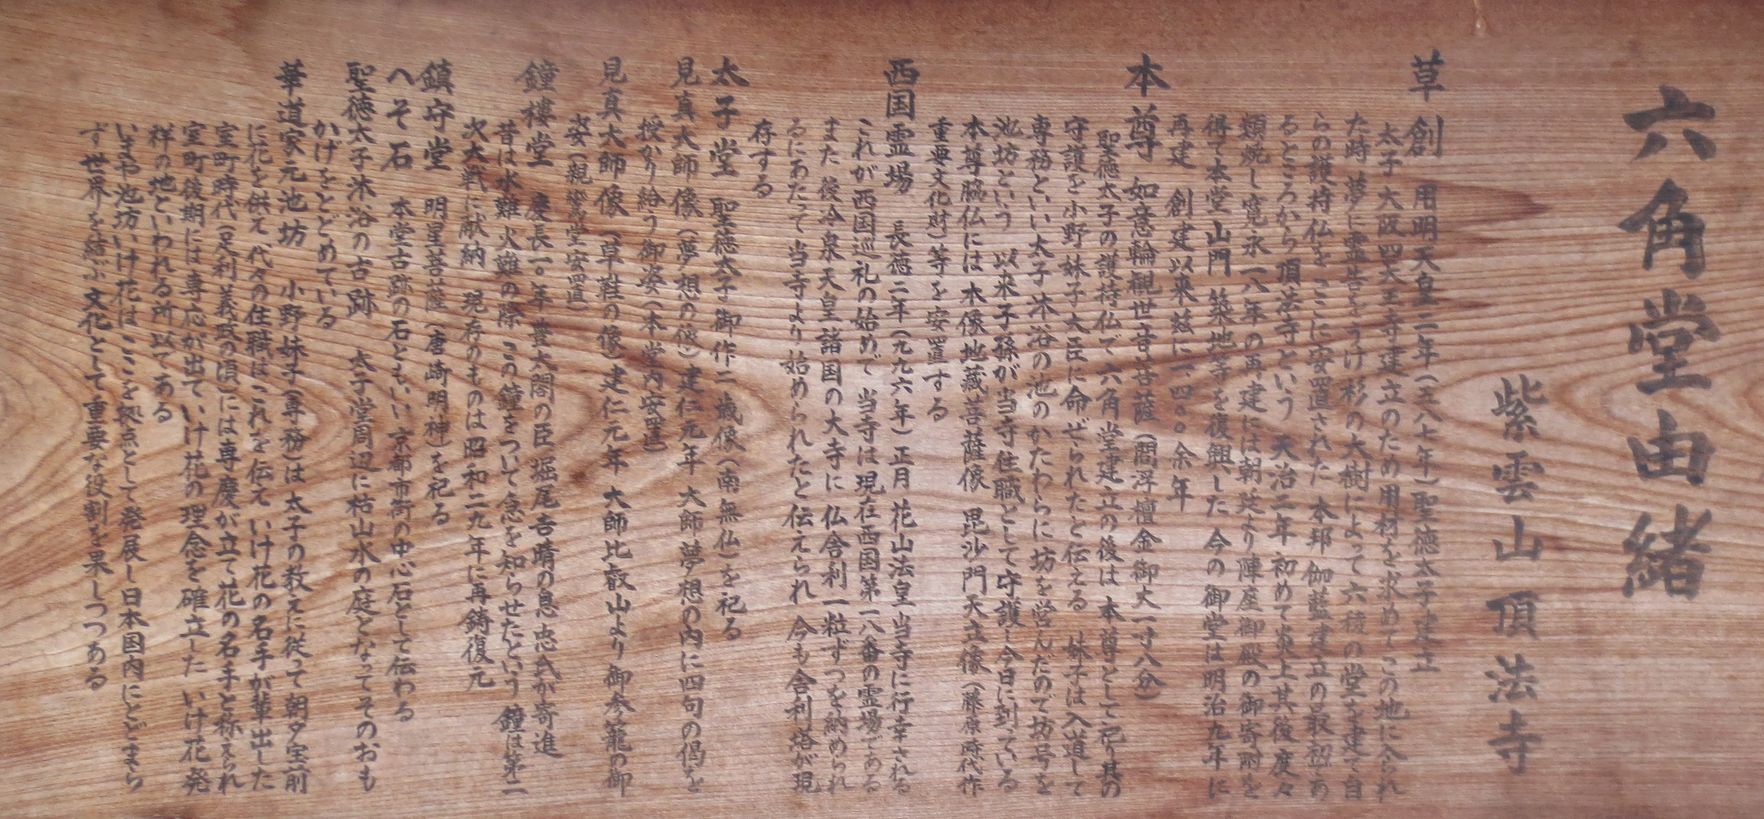 六角堂由緒
紫雲山頂法寺
草創 用明天皇二年(五八七年)聖徳太子建立
太子 大阪四天王寺建立のため用材を求めてこの地に今られ
た時 夢に霊告をうけ杉の大樹によって六稜の堂を建て自
らの護持仏をここに安置された 本邦伽藍建立の最初であ
るところから頂法寺という 天治二年 初めて炎上其後度々
類焼し寛永一八年の再建には朝廷より陣座御殿の御寄附を
得て本堂 山門 築地等を復興した 今の御堂は明治九年に
再建 創建以来玆に一、四〇〇余年
本尊 如意輪観世音菩薩(閻浮檀金御丈一寸八分)
聖徳太子の護持仏で六角堂建立の後は 本尊として祀り其の
守護を小野妹子大臣に命ぜられたと伝える 妹子は入道して
専務といい太子沐浴の池のかたわらに坊を営んだので坊号を
池坊という 以来子孫が当寺住職として守護し今日に到っている
本尊脇仏には木像地蔵菩薩像 毘沙門天立像(藤原時代作
重要文化財)等を安置する
西国霊場 長徳二年(九九六年)正月 花山法皇 当寺に行幸される
これが西国巡礼の始めで 当寺は現在西国第一八番の霊場である
また 後冷泉天皇 諸国の大寺に 仏舎利一粒ずつを納められ
るにあたって 当寺より始められたと伝えられ 今も舎利塔が現
存する
太子堂 聖徳太子御作二歳像(南無仏)を祀る
見真大師像(夢想の像)建仁元年 大師夢想の内に四句の偈を
授かり給う御姿(本堂内安置)
見真大師像(草鞋の像)建仁元年 大師比叡山より御参籠の御
姿(親鸞堂安置)
鐘樓堂 慶長一〇年 豊太閤の臣 堀尾吉晴の息忠氏が寄進
昔は水難 火難の際 この鐘をついて急を知らせたという 鐘は第二
次大戦に献納 現存のものは昭和二九年に再鋳復元
鎮守堂 明星菩薩(唐崎明神)を祀る
へそ石 本堂古跡の石ともいい 京都市街の中心石として伝わる
聖徳太子沐浴の古跡 太子堂周辺に枯山水の庭となってそのおも
かげをとどめている
華道家元池坊 小野妹子(専務)は太子の教えに従って朝夕宝前
に花を供え 代々の住職はこれを伝え いけ花の名手が輩出した
室町時代(足利義政の頃)には専慶が立て花の名手と称えられ
室町後期には専応が出て いけ花の理念を確立した いけ花発
祥の地といわれる所以である
いまや池坊いけ花は ここを拠点として発展し日本国内にとどまら
ず 世界を結ぶ文化として重要な役割を果しつつある